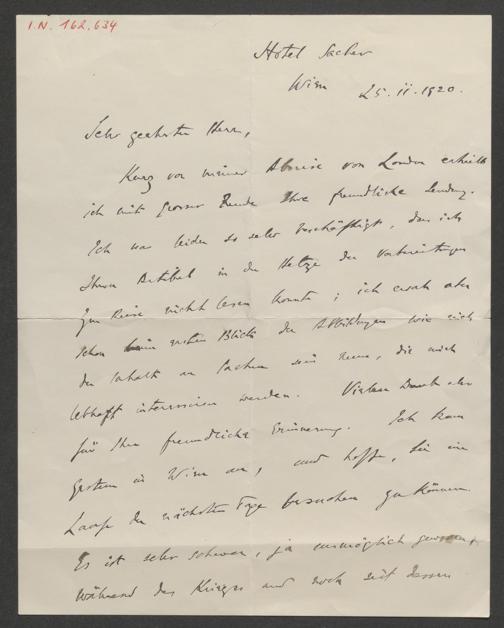 I.N. 162.634
Hotel Sacher
Wien 25.ii.1920.
Sehr geehrter Herr,
Kurz vor meiner Abreise von London erhielt
ich mit grosser Freude Ihre freundliche Sendung.
Ich war leider so sehr beschäftigt, dass ich
Ihren Artikel in der Hetze der Vorbereitungen
zur Reise nicht lesen konnte; ich ersah aber
schon beim ersten Blick der Abbildungen wie reich
der Inhalt an Sachen sein muss, die mich
lebhaft interessieren werden. Vielen Dank also
für Ihre freundliche Erinnerung. Ich kam
gestern in Wien an, und hoffe, Sie im
Laufe der nächsten Tage besuchen zu können.
Es ist sehr schwer, ja unmöglich gewesen,
während des Krieges und noch seit dessen